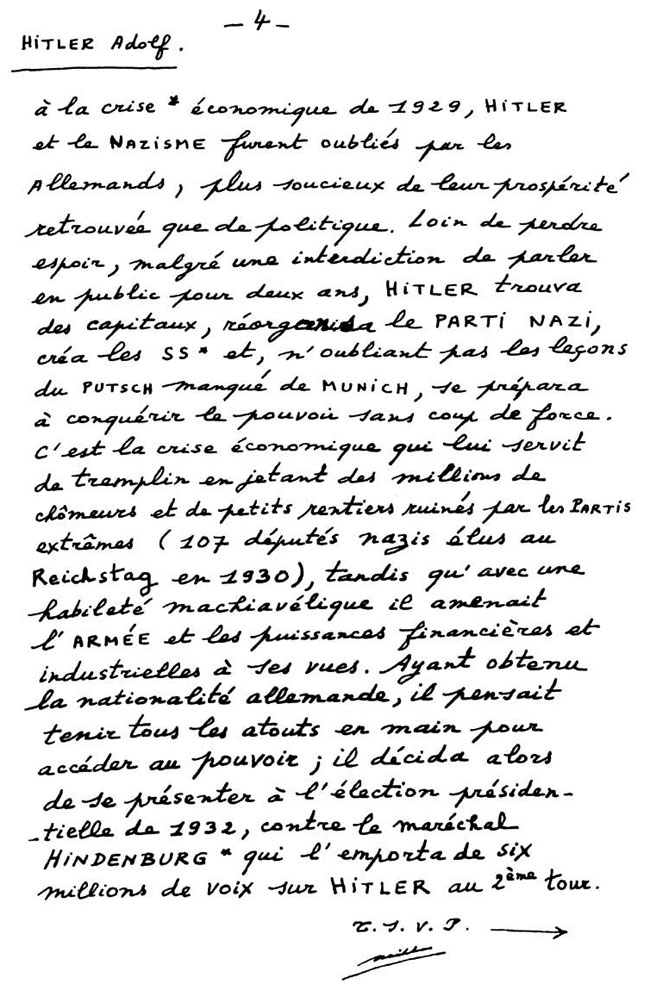 – 4 –
HITLER Adolf.
à la crise * économique de 1929, HITLER
et le NAZISME furent oubliés par les
Allemands, plus soucieux de leur prospérité
retrouvée que de politique. Loin de perdre
espoir, malgré une interdiction de parler
en public pour deux ans, HITLER trouva
des capitaux, réorganisa le PARTI NAZI,
créa les SS * et, n'oubliant pas les leçons
du PUTSCH manqué de MUNICH, se prépara
à conquérir le pouvoir sans coup de force.
C'est la crise économique qui lui servit
de tremplin en jetant des millions de
chômeurs et de petits rentiers ruinés par les PARTIS
extrêmes (107 députés nazis élus au
Reichstag en 1930), tandis qu'avec une
habileté machiavélique il amenait
l'ARMÉE et les puissances financières et
industrielles à ses vues. Ayant obtenu
la nationalité allemande, il pensait
tenir tous les atouts en main pour
accéder au pouvoir ; il décida alors
de se présenter à l'élection présiden-
-tielle de 1932, contre le maréchal
HINDENBURG * qui l'emporta de six
millions de voix sur HITLER au 2ème tour.
T. S. V. P. →